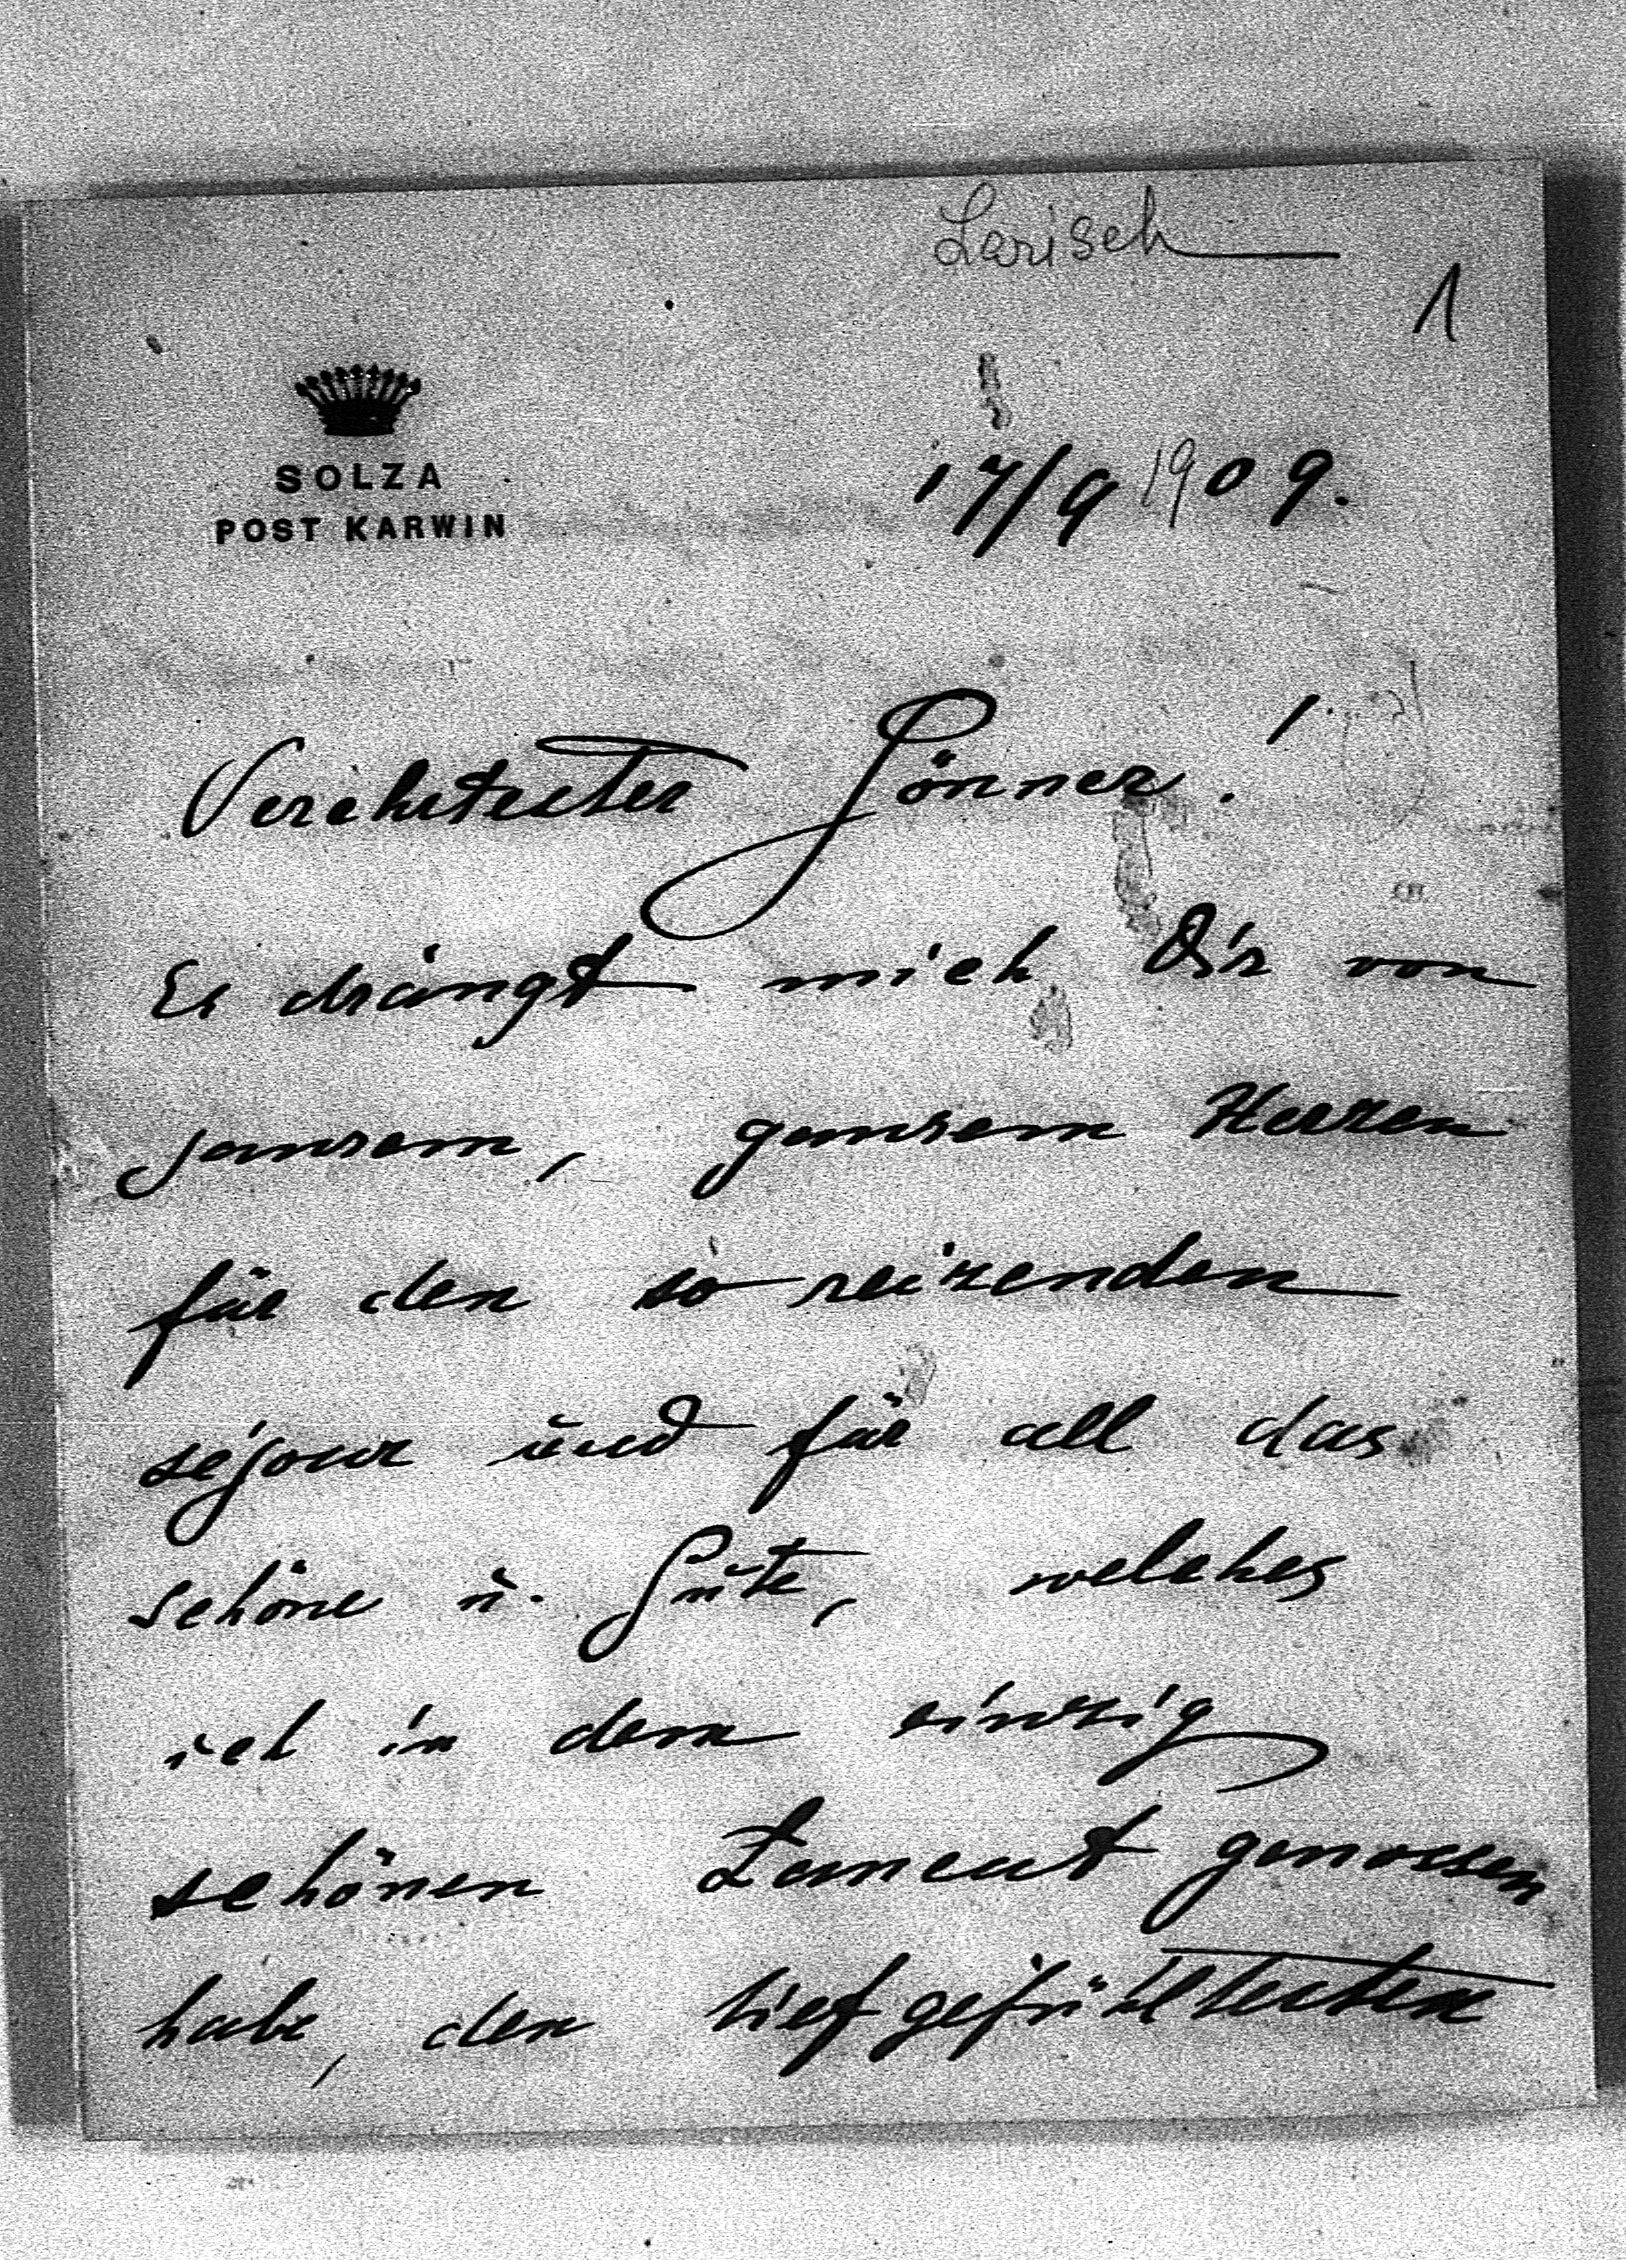 Larisch
1
SOLZA
POST KARWIN
17/9 1909.
Verehrtester Gönner!
Es drängt mich Dir von
ganzem, ganzem Herzen
für den so reizenden
séjour und für all das
schöne u. Gute, welches
ich in dem einzig
schönen Lancut genossen
habe, den tiefgefühltesten